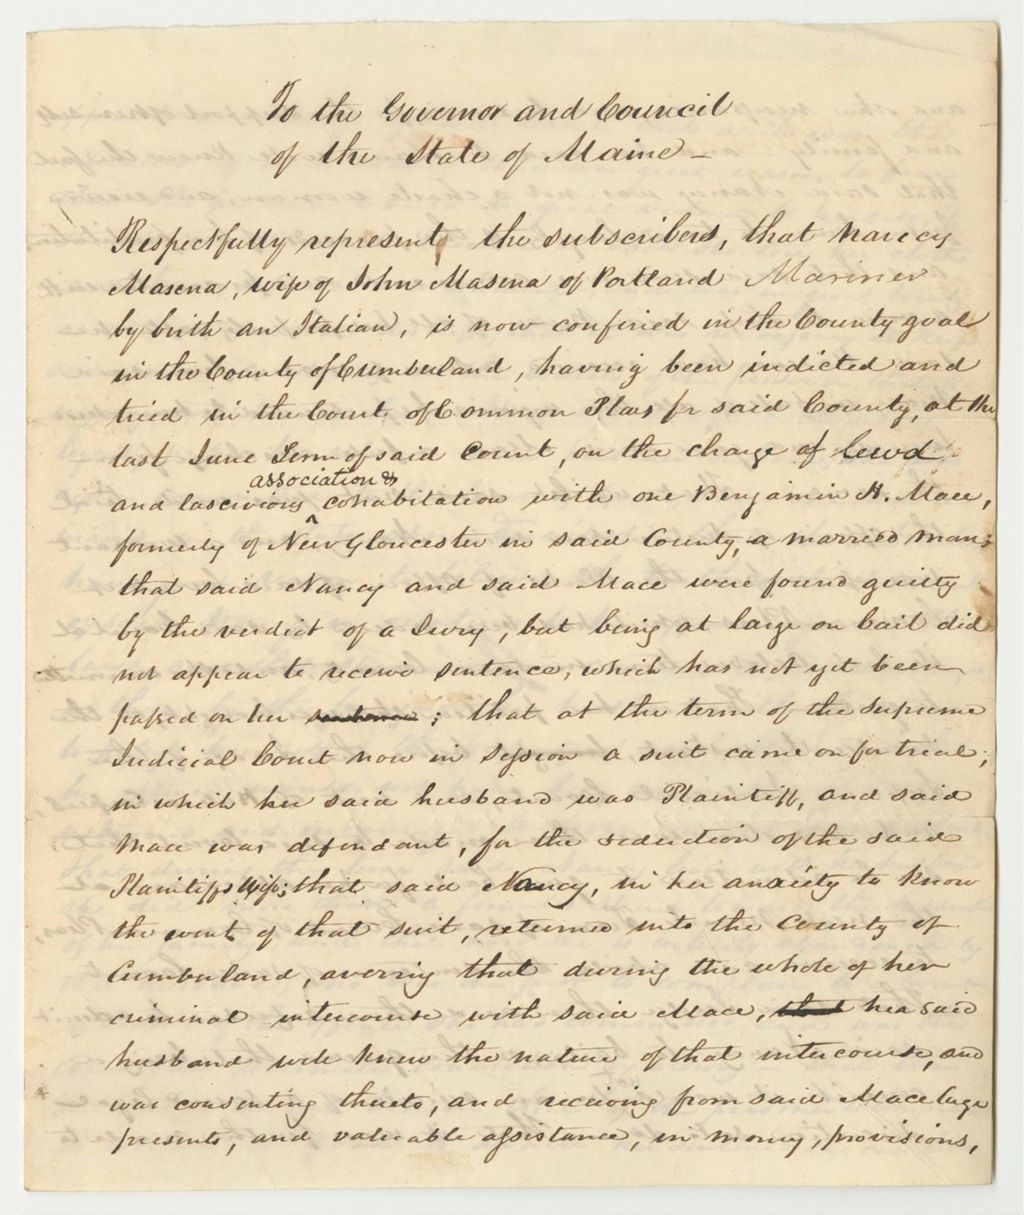 To the Governor and Council
of the State of Maine –
Respectfully represent the subscribers, that Nancy
Masena, wife of John Masena of Portland Mariner
by birth an Italian, is now confined in the County goal
in the County of Cumberland, having been indicted and
tried in the Court of Common Pleas for said County, at the
last June Term of said Court, on the charge of lewd
association &
and lascivious ^ cohabitation with one Benjamin H. Mace,
formerly of New Gloucester in said County, a married man;
that said Nancy and said Mace were found guilty
by the verdict of a Jury, but being at large on bail did
not appear to receive sentence, which has not yet been
passed on her sentence; that at the term of the Supreme
Judicial Court now in session a suit came on for trial;
in which her said husband was Plaintiff, and said
Mace was defendant, for the seduction of the said
Plaintiffs wife; that said Nancy, in her anxiety to know
the event of that suit, returned into the County of
Cumberland, averring that during the whole of her
criminal intercourse with said Mace, that her said
husband well knew the nature of that intercourse, and
was consenting thereto, and receiving from said Mace large
presents, and valuable assistance, in money, provisions,